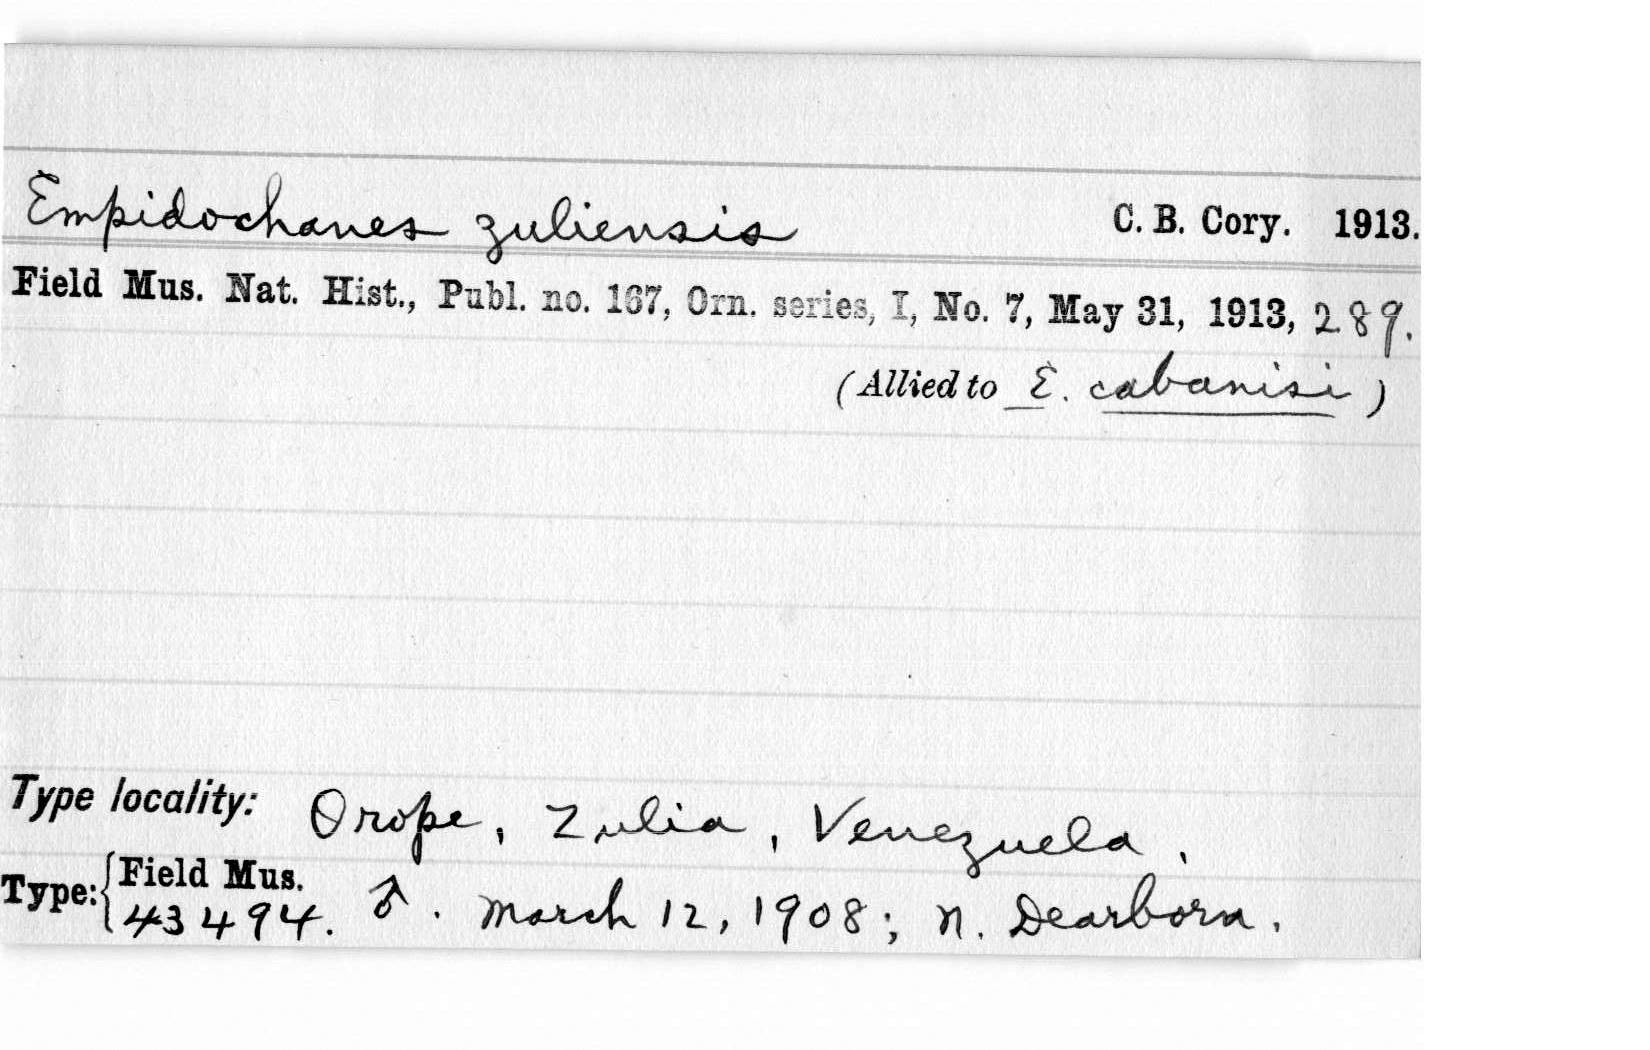 Empidochanes zuliensis C. B. Cory. 1913.
Field Mus. Nat. Hist., Publ. no. 167, Orn. series, I, No. 7, May 31, 1913, 289.
(Allied to E. cabanisi)
Type locality: Orope, Zulia, Venezuela.
Type: { Field Mus.
43494. ♂. March 12, 1908; N. Dearborn.